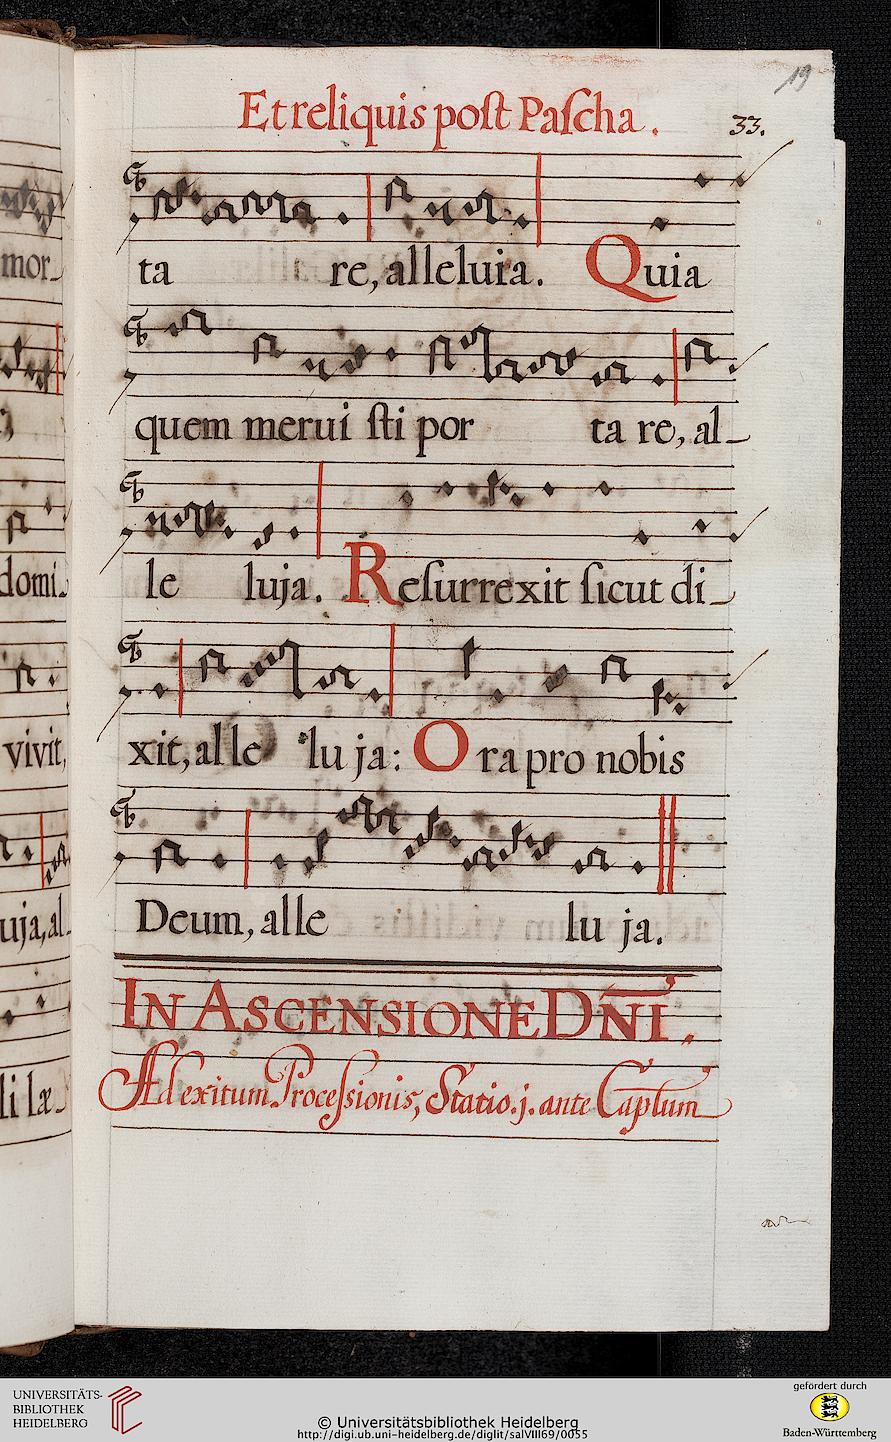 19
Et reliquis post Pascha.
33.
mor-
ta re, alleluia. Quia
quem merui sti por ta re, al-
domi-
le luja. Resurrexit sicut di-
vivit,
xit, alle lu ja: Ora pro nobis
uja, al-
Deum, alle lu ja.
IN ASCENSIONE DNI.
li læ-
Ad exitum Processionis, Statio. j. ante Captum
UNIVERSITÄTS-
BIBLIOTHEK
HEIDELBERG
© Universitätsbibliothek Heidelberg
http://digi.ub.uni-heidelberg.de/diglit/salVIII69/0055
gefördert durch
Baden-Württemberg